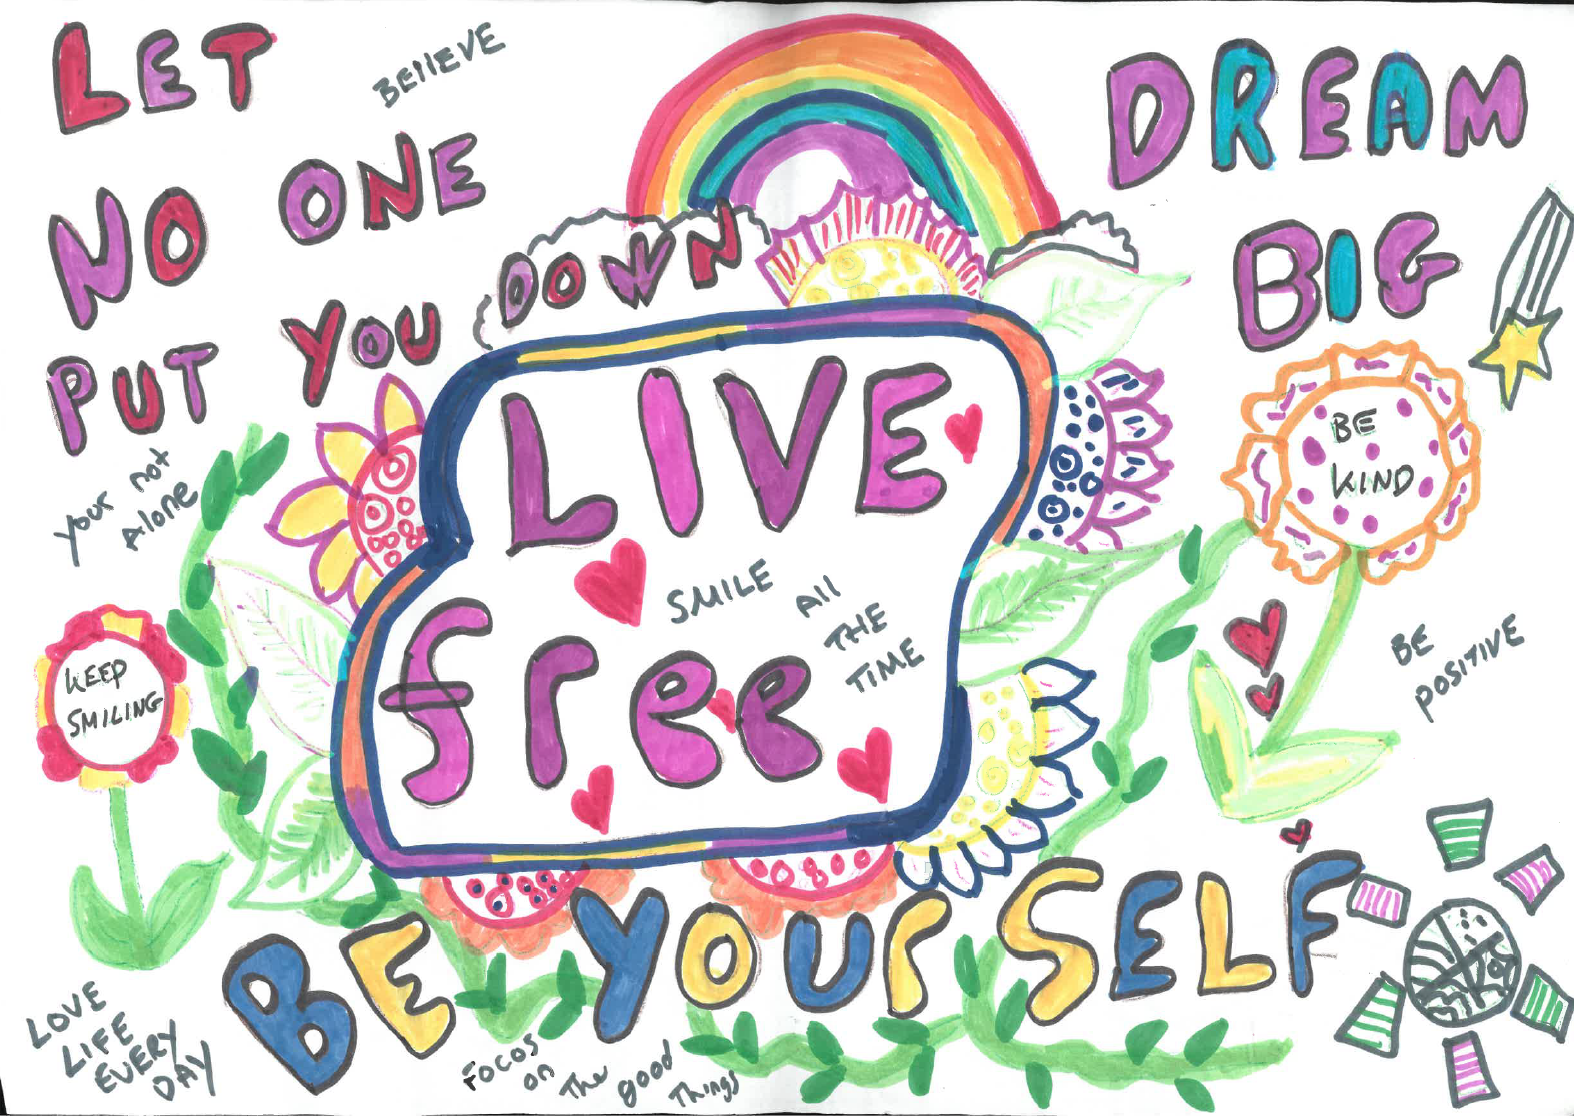 LET
NO ONE
PUT YOU DOWN
BElIEVE
DREAM
BIG
BE
KIND
Your not
Alone
LIVE
free
SMILE All
THE
TIME
KEEP
SMILING
BE
POSITIVE
BE YOUrSELF
LOVE
LIFE
EVERY
DAY
FOCOS
on
The
good
Things